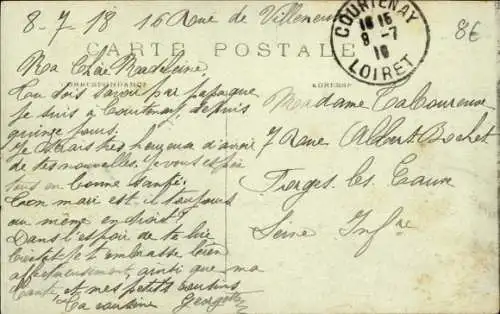 8-7-18 16 Rue de Villeneuve
COURTENAY
16 15
8 -7
18
LOIRET
8€
CARTE POSTALE
Ma Chère Madeleine,
CORRESPONDANCE
ADRESSE
Tu dois savoir par papa que
je suis à Courtenay, depuis
quinze jours.
Je serais très heureuse d'avoir
de tes nouvelles. Je vous espère
tous en bonne santé.
Ton mari est il toujours
au même endroit?
Dans l'espoir de te lire
bientôt je t'embrasse bien
affectueusement, ainsi que ma
tante, et mes petits cousins
Ta cousine Georgette
Madame
7 Rue Albert Bochet
Forges les Eaux
Seine Infre